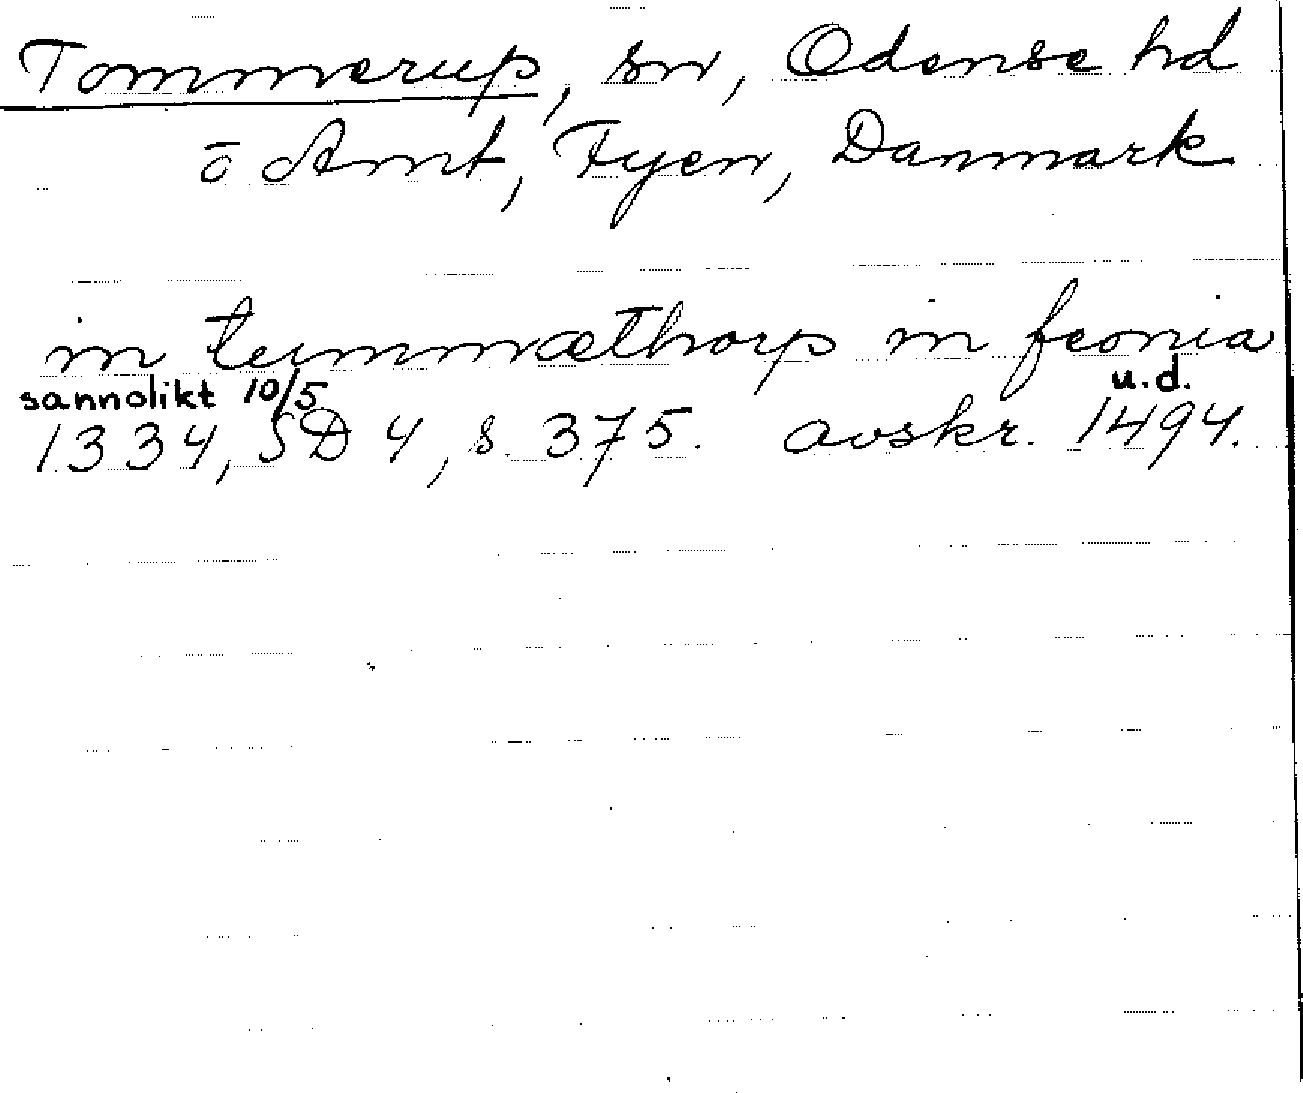 Tommerup, sn, Odense hd
o Amt, Fyen, Danmark
in tummæthorp in feonia
sannolikt 10/5 u.d.
1334, SD 4, s. 375. avskr. 1494.